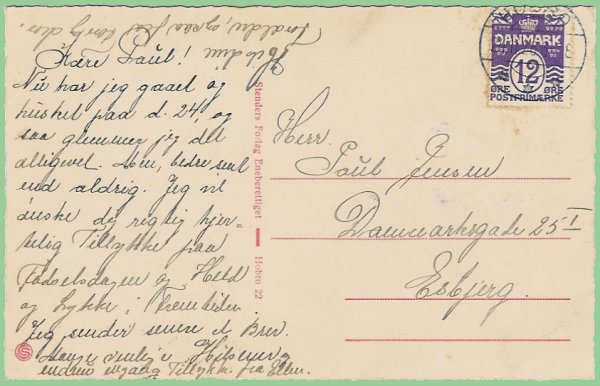 Kære Poul!
Nu har jeg gaaet og
husket paa d. 24, og
saa glemmer jeg det
alligevel. Men, bedre sent
end aldrig. Jeg vil
ønske dig rigtig hjer-
telig Tillykke paa
Fødselsdagen og Held
og Lykke i Fremtiden.
Jeg sender senere et Brev.
Mange venlige Hilsener og
endnu engang Tillykke fra Ellen.
Hils dine
Forældre, ogsaa fra
Stenders Forlag Eneberettiget
Hobro 22
S
HOBRO
DANMARK
12
ØRE ØRE
POSTFRIMÆRKE
Herr.
Poul Jensen
Danmarksgade 25 I
Esbjerg.